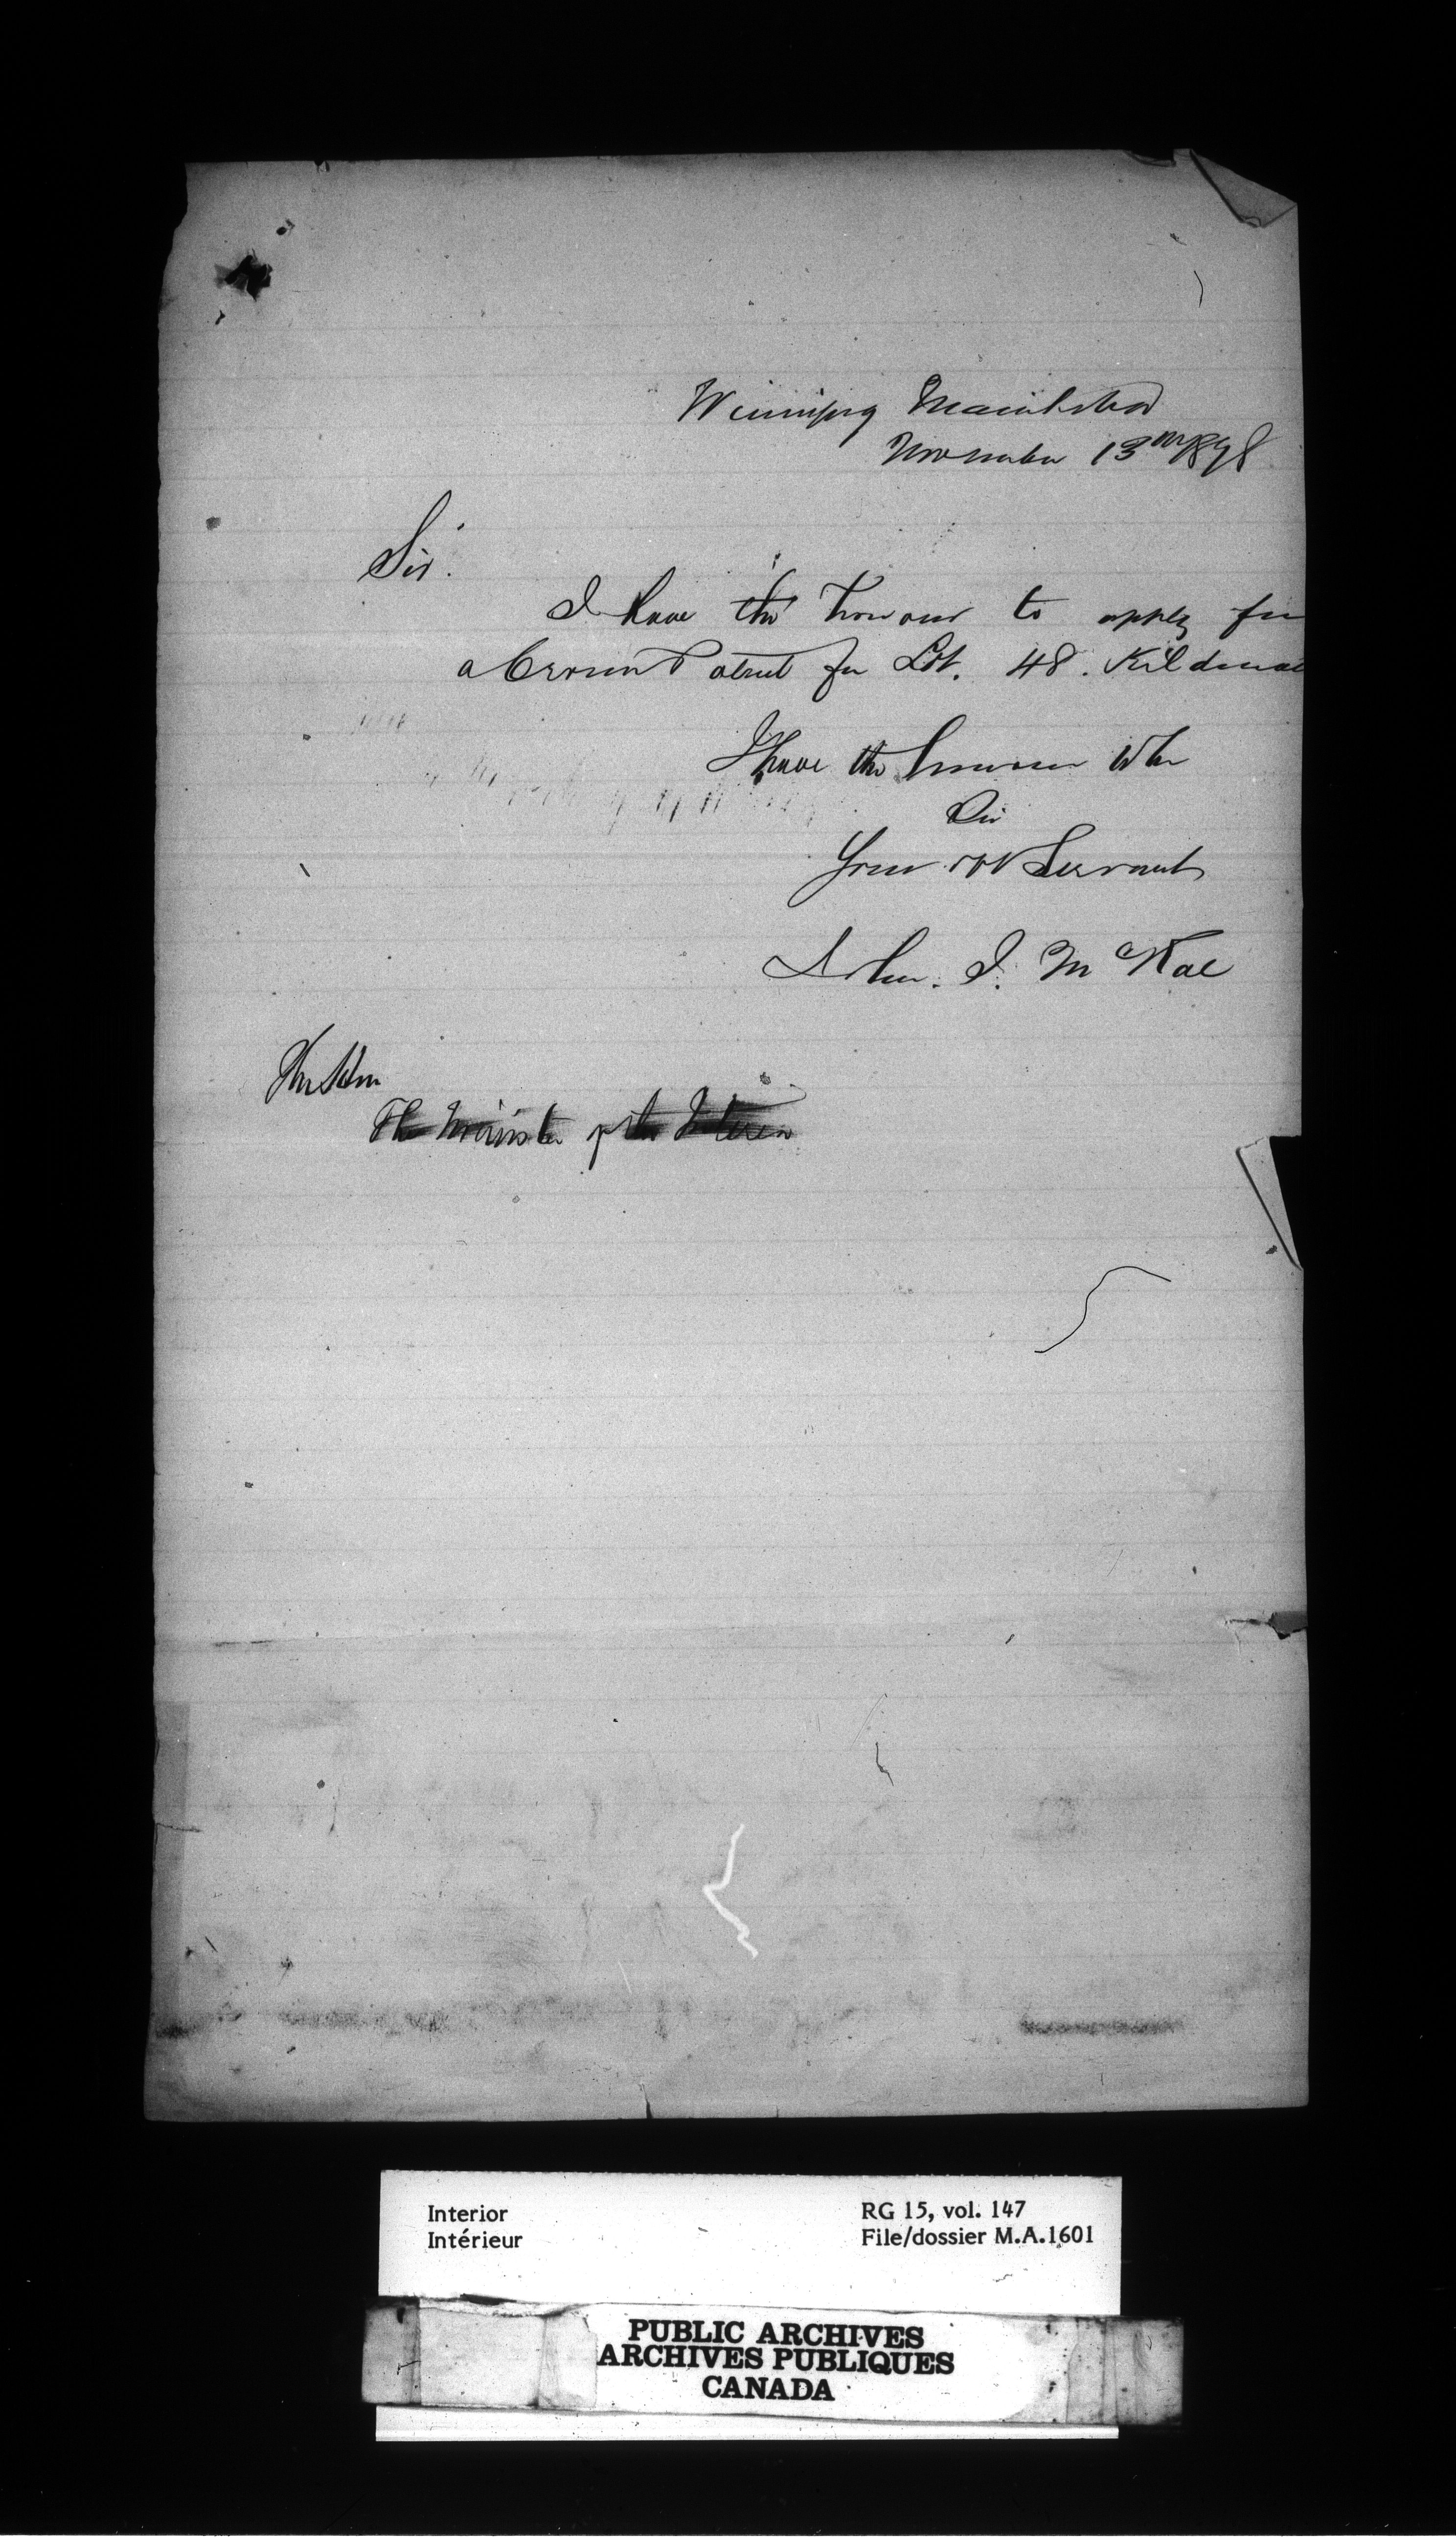 Winnipeg Manitoba
November 13th 1878
Sir.
I have the honour to apply for
a Crown Patent for Lot. 48. Kildonan
I have the honour to be
Sir
Your Servant
McRae
The Hon
The Minister of the Interior
Interior
Intérieur
RG 15, vol. 147
File/dossier M.A.1601
PUBLIC ARCHIVES
ARCHIVES PUBLIQUES
CANADA